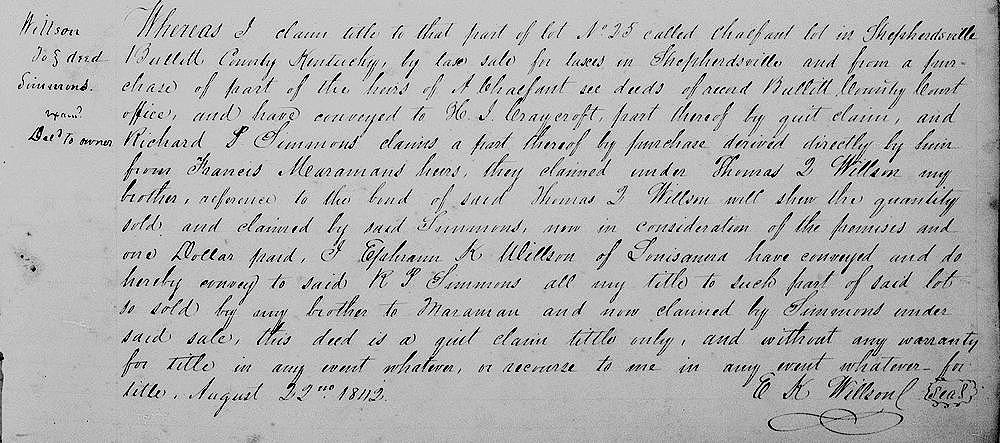 Willson
To } deed
Simmons.
exam.d
Del.d to owner
Whereas I claim title to that part of lot No 25 called Chalfant lot in Shepherdsville
Bullitt County Kentucky, by tax sale for taxes in Shepherdsville and from a pur-
chase of part of the heirs of A Chalfant see deeds of record Bullitt County Court
office, and have conveyed to H. J. Craycroft, part thereof by quit claim, and
Richard P Simmons claims a part thereof by purchase derived directly by him
from Francis Maramans heirs, they claimed under Thomas Q Willson my
brother, reference to the bond of said Thomas Q Willson will shew the quantity
sold and claimed by said Simmons, now in consideration of the premises and
one Dollar paid, I Ephraim K Willson of Louisanna have conveyed and do
hereby convey to said R P Simmons all my title to such part of said lot
so sold by my brother to Maraman and now claimed by Simmons under
said sale, this deed is a quit claim tittle only, and without any warranty
for title in any event whatever, or recourse to me in any event whatever for
title, August 22nd 1842.
E K Willson {Seal}